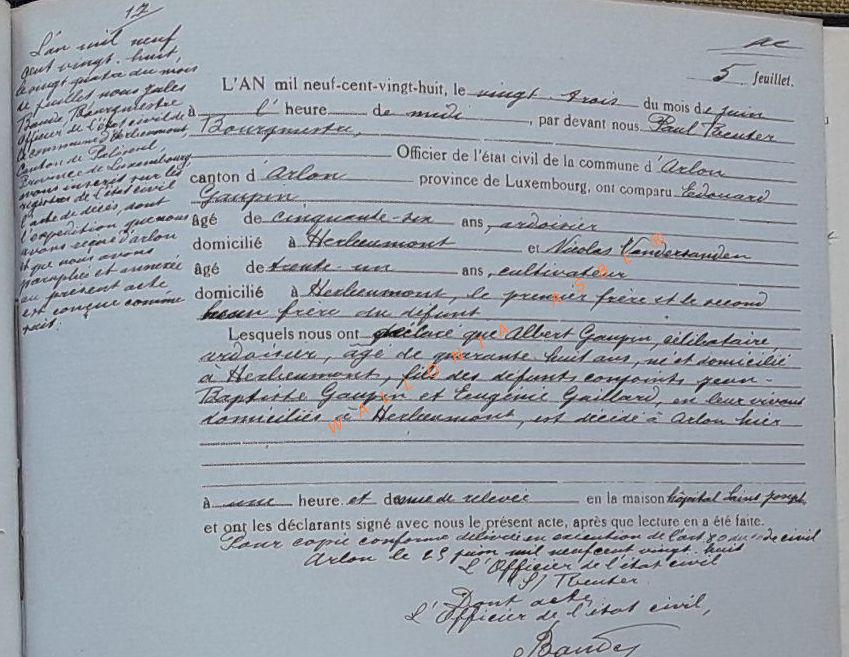 12
L'an mil neuf
cent vingt-huit,
le vingt quatre du mois
de juillet nous Jules
Bande Bourgmestre
officier de l'état civil de
la commune d'Herbeumont,
Canton de Paliseul
Province de Luxembourg
avons inscrit sur les
registres de l'état civil
l'acte de décès, dont
l'expédition que nous
avons reçue d'Arlon
et que nous avons
paraphée et annexée
au présent acte
est conçue comme
suit:
5 feuillet.
L'AN mil neuf-cent-vingt-huit, le vingt trois du mois de juin
à l' heure de midi, par devant nous Paul Reuter
Bourgmestre,
Officier de l'état civil de la commune d'Arlon
canton d'Arlon province de Luxembourg, ont comparu Edouard
Gaupin
âgé de cinquante-six ans, ardoisier
domicilié à Herbeumont et Nicolas Vandersanden
âgé de trente-un ans, cultivateur
domicilié à Herbeumont, le premier frère et le second
beau frère du défunt
Lesquels nous ont déclaré que Albert Gaupin, célibataire,
ardoisier, âgé de quarante huit ans, né et domicilié
à Herbeumont, fils des défunts conjoints Jean-
Baptiste Gaupin et Eugénie Gaillard, en leur vivant
domiciliés à Herbeumont, est décédé à Arlon hier
à une heure et demie de relevée en la maison hôpital Saint Joseph
et ont les déclarants signé avec nous le présent acte, après que lecture en a été faite.
Pour copie conforme délivrée en exécution de l'art. 80 du code civil
Arlon le 25 juin mil neuf cent vingt-huit
L'Officier de l'état civil
(S) Reuter.
Dont acte,
L'Officier de l'état civil,
Bande
WALLONIA ASBL